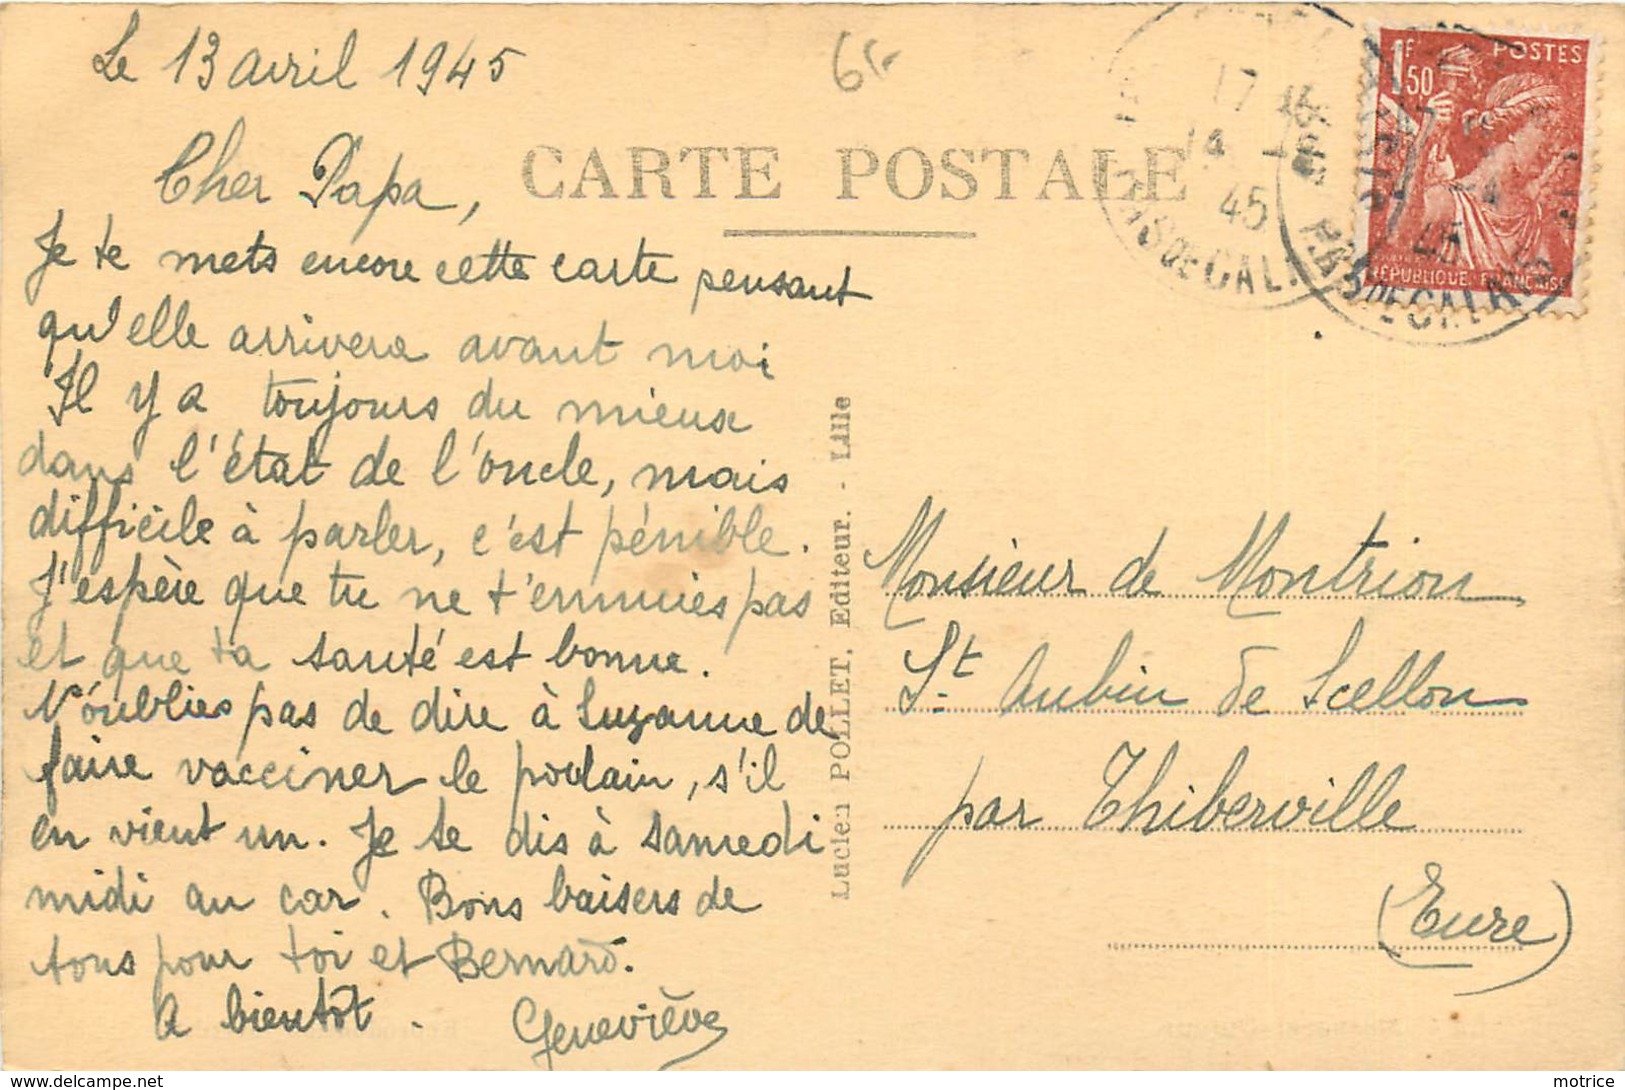 Le 13 avril 1945
CARTE POSTALE
Cher Papa,
Je te mets encore cette carte pensant
qu'elle arrivera avant moi
Il y a toujours du mieux
dans l'état de l'oncle, mais
difficile à parler, c'est pénible.
J'espère que tu ne t'ennuies pas
et que ta santé est bonne.
N'oublies pas de dire à Suzanne de
faire vacciner le poulain, s'il
en vient un. Je te dis à samedi
midi au car. Bons baisers de
tous pour toi et Bernard.
A bientôt.
Geneviève
Lucien POLLET, Editeur. - Lille
1F50
POSTES
RÉPUBLIQUE FRANÇAISE
17
14 - 4
45
PAS DE CALAIS
45
PAS DE CALAIS
Monsieur de Montrion
St. Aubin de Scellon
par Thiberville
(Eure)
motrice